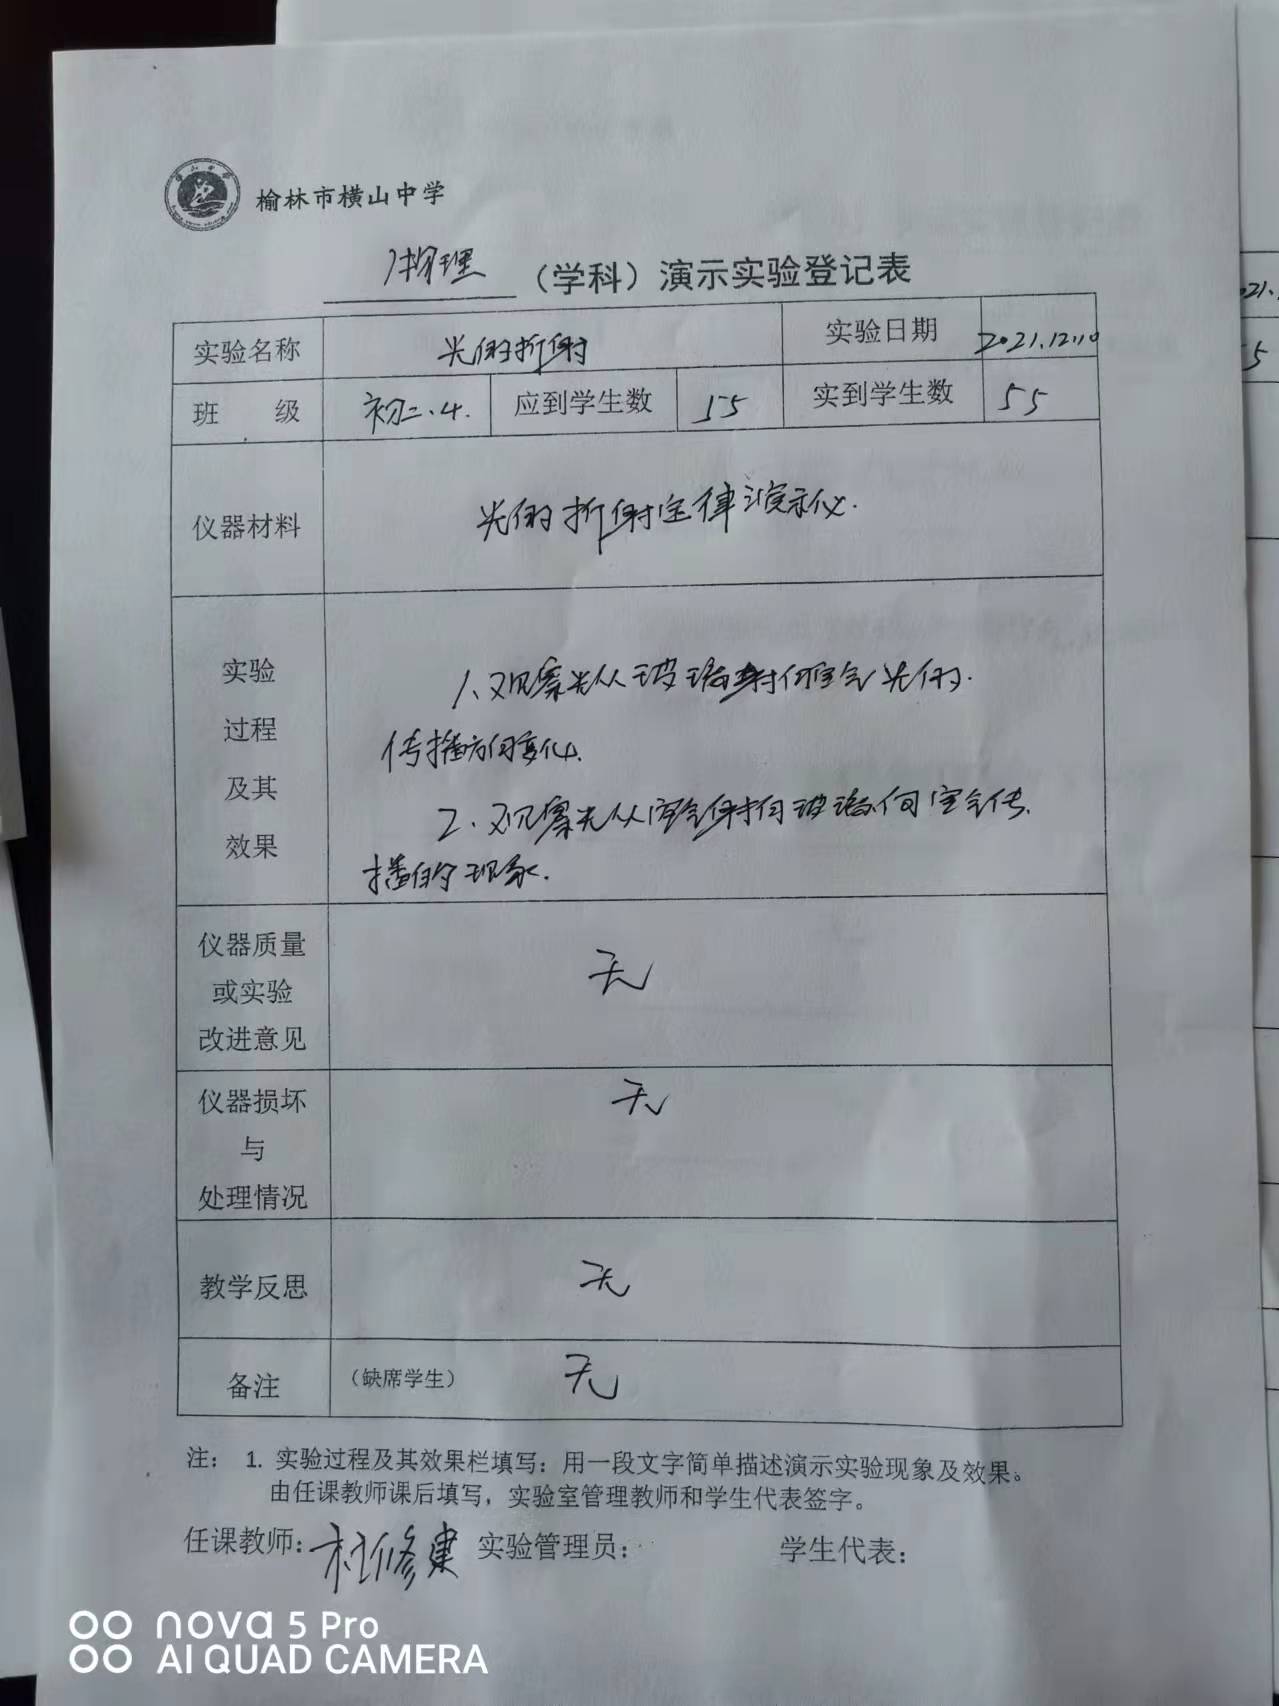 榆林市横山中学
物理 （学科）演示实验登记表
实验名称 光的折射 实验日期 2021.12.10
班 级 初二.4. 应到学生数 55 实到学生数 55
仪器材料 光的折射定律演示仪.
实验
过程
及其
效果
1、观察光从玻璃射向空气光的.
传播方向变化.
2、观察光从空气射向玻璃向空气传.
播的现象.
仪器质量
或实验
改进意见
无
仪器损坏
与
处理情况
无
教学反思 无
备注 （缺席学生） 无
注： 1. 实验过程及其效果栏填写：用一段文字简单描述演示实验现象及效果。
由任课教师课后填写，实验室管理教师和学生代表签字。
任课教师：杜修建 实验管理员： 学生代表：
nova 5 Pro
AI QUAD CAMERA